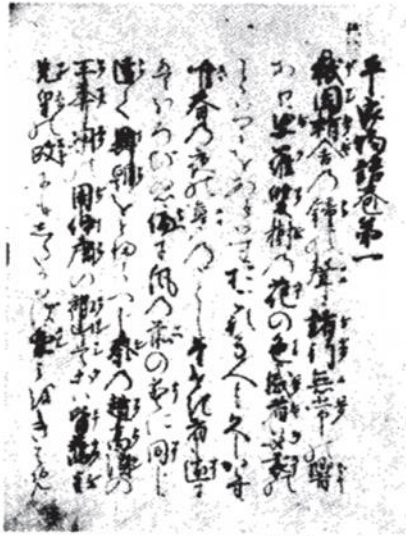 平家物語巻第一
祇園精舎乃鐘の聲諸行無常の響
あり娑羅雙樹乃花の色盛者必衰の
ことハりをあらハす人も久しからす
春乃夜の夢乃ことし
ほろひぬ偏に風乃前の塵に同し
遠く異朝をとふらへハ秦乃趙高漢の
王莽梁の周伊唐の禄山是等ハ皆舊主
先皇の政にもしたかハす樂をきはめ